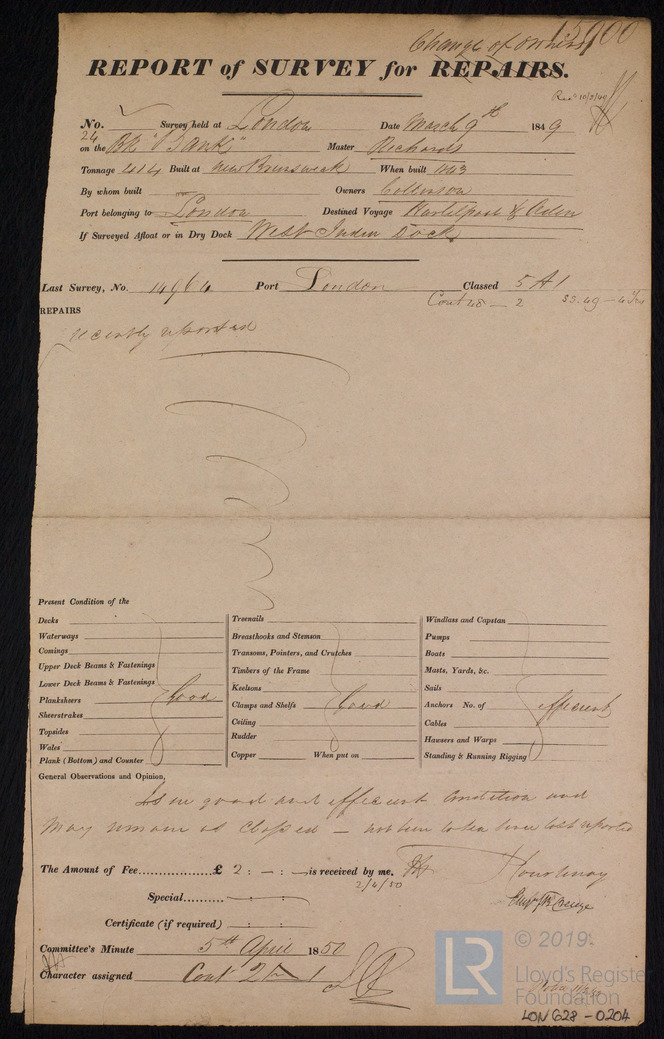 Change of Owners 15900
REPORT of SURVEY for REPAIRS.
Rec 10/3/49
No. Survey held at London Date March 9th 1849
24
on the Bk "Bank" Master Richards
Tonnage 414 Built at New Brunswick When built 1843
By whom built Owners
Port belonging to London Destined Voyage Hartlepool & Aden
If Surveyed Afloat or in Dry Dock West India Dock
Last Survey, No. 14964 Port London Classed 5 A 1
Cont 48 — 2
REPAIRS
recently reported
Present Condition of the
Decks
Waterways
Comings
Upper Deck Beams & Fastenings
Lower Deck Beams & Fastenings
Planksheers Good
Sheerstrakes
Topsides
Wales
Plank (Bottom) and Counter
Treenails
Breasthooks and Stemson
Transoms, Pointers, and Crutches
Timbers of the Frame
Keelsons
Clamps and Shelfs Good
Ceiling
Rudder
Copper When put on
Windlass and Capstan
Pumps
Boats
Masts, Yards, &c.
Sails
Anchors No. of efficient
Cables
Hawsers and Warps
Standing & Running Rigging
General Observations and Opinion,
Is in good and efficient condition and
may remain as classed — not been to sea since last reported
The Amount of Fee £ 2 : — : — is received by me,
2/4/50
Special
Certificate (if required)
Committee's Minute 5th April 1850
Character assigned Cont 2 1
© 2019
LR Lloyd's Register
Foundation
LON 628-0204